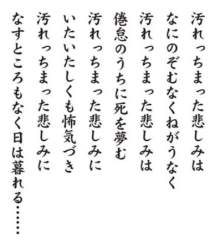 汚れっちまった悲しみは
なにのぞむなくねがうなく
汚れっちまった悲しみは
倦怠のうちに死を夢む
汚れっちまった悲しみに
いたいたしくも怖気づき
汚れっちまった悲しみに
なすところもなく日は暮れる……